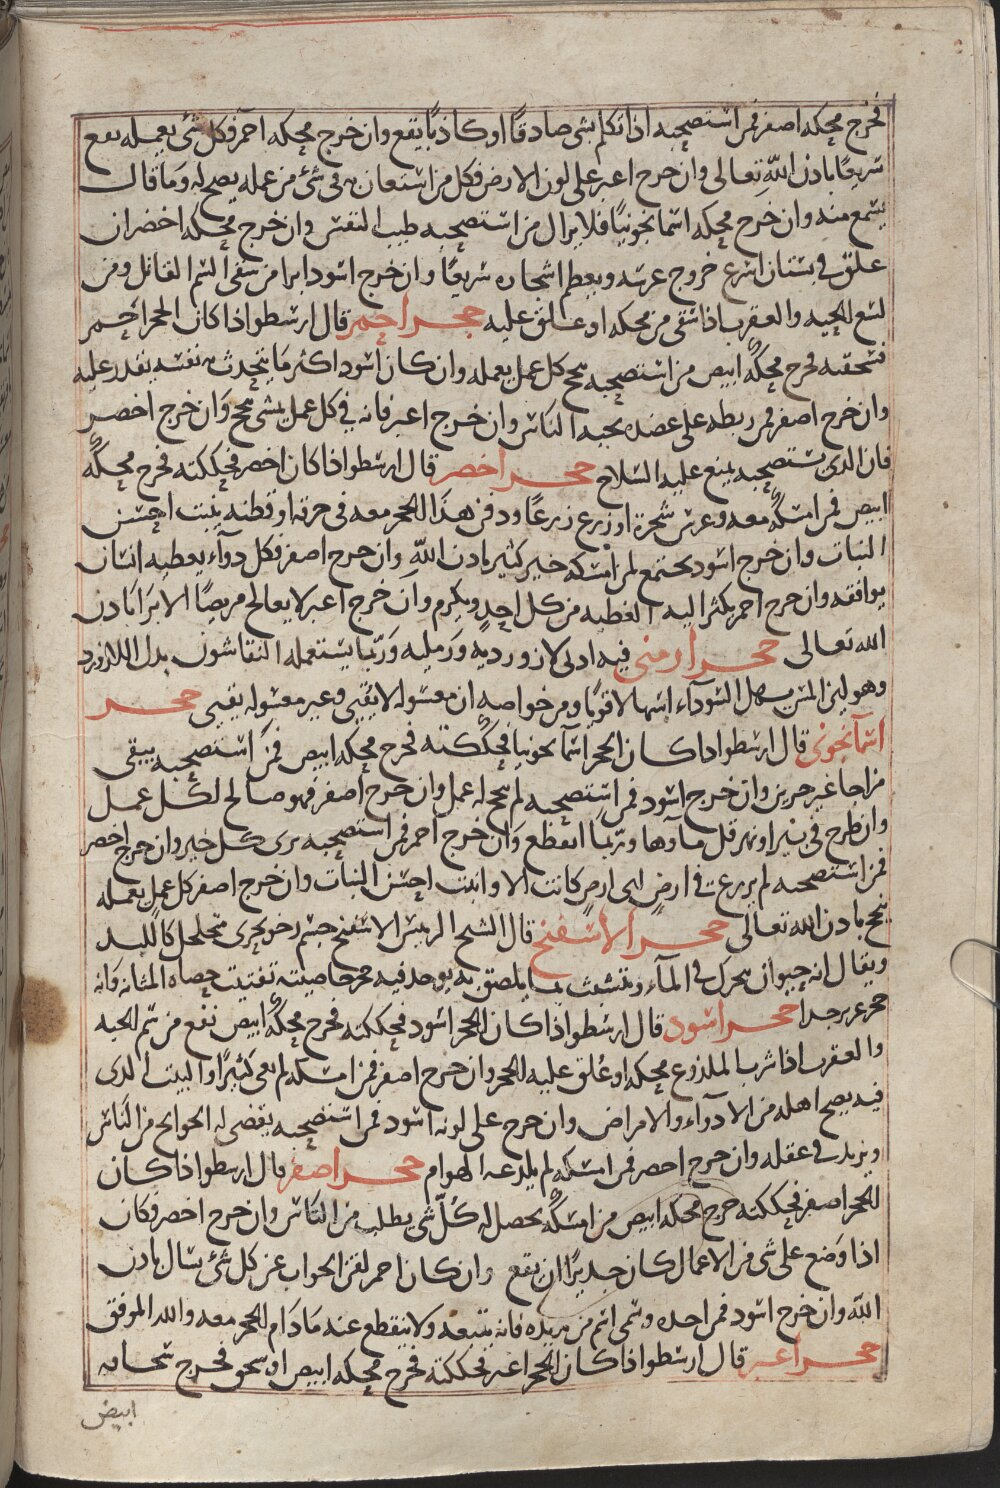 فخرج محكه اصفر فمن استصحبه اذا تكلم بشئ صادقًا او كاذبًا يقع وان خرج محكه احمر فكل شئ يعمله يقع
سريعًا باذن الله تعالى وان خرج اغبر على لون الارض فكل من استعان به في شئ من عمله يصح له وما قال
يسمع منه وان خرج محكه اسمانجونيًا فلا يزال من استصحبه طيب النفس وان خرج محكه اخضر ان
علق في بستان اسرع خروج غرسه ويعظم اشجاره سريعًا وان خرج اسود ابرا من سقى السم القاتل ومن
لسع الحيه والعقرب اذا سقى من محكه او علق عليه حجر احمر قال ارسطو اذا كان الحجر احمر
فسحقته فخرج محكه ابيض من استصحبه ينجح كل عمل يعمله وان كان اسود اكثر ما يتحدث به نفسه يقدر عليه
وان خرج اصفر فمن ربطه على عضده يحبه الناس وان خرج اغبر فانه في كل عمل يمشى ينجح وان خرج اخضر
فان الذى يستصحبه يمنع عليه السلاح حجر اخضر قال ارسطو اذا كان اخضر فحككته فخرج محكه
ابيض فمن امسكه معه وغرس شجرة او زرع زرعًا ودفن هذا الحجر معه في خرقة او قطنه ينبت احسن
النبات وان خرج اسود يجتمع لمن امسكه خير كثير باذن الله وان خرج اصفر فكل دوآء يعطيه انسان
يوافقه وان خرج احمر يكثر اليه العطيه من كل احد ويكرم وان خرج اغبر لا يعالج مريضًا الا برا باذن
الله تعالى حجر ارمنى فيه ادنى لازورديه ورمليه وربما يستعمله النقاشون بدل اللازورد
وهو لين المس يسهل السودآء اسهالا قويًا ومن خواصه ان مغسوله لا يقيى وغير مغسوله يقيى حجر
اسمآنجونى قال ارسطو اذا كان الحجر اسمآنجونيا فحككته فخرج محكه ابيض فمن استصحبه يبقى
مزاجا غير حزين وان خرج اسود فمن استصحبه لم ينجح له عمل وان خرج اصفر فهو صالح لكل عمل
وان طرح في بئر او نهر قل مآوها وربما انقطع وان خرج احمر فمن استصحبه يرى كل خير وان خرج اخضر
فمن استصحبه لم يزرع في ارض اى ارض كانت الا وانبت احسن النبات وان خرج اصفر كل عمل يعمله
ينجح باذن الله تعالى حجر الاسفنج قال الشيخ الرئيس الاسفنج جسم رخو بحرى متخلخل كاللبد
ويقال انه حيوان يتحرك في المآء ويتشبث بما يلصق به يوجد فيه حجر خاصيته تفتيت حصاه المثانه وانه
حجر عزيز جدا حجر اسود قال ارسطو اذا كان الحجر اسود فحككته فخرج محكه ابيض نفع من سم الحيه
والعقرب اذا شرب الملدوغ محكه او عُلق عليه الحجر وان خرج اصفر فمن امسكه لم يعى كثيرًا والبيت الذى
فيه يصح اهله من الادوآء والامراض وان خرج على لونه اسود فمن استصحبه يقضى له الحوايج من الناس
ويزيد في عقله وان خرج اخضر فمن امسكه لم يلدغه الهوام حجر اصفر قال ارسطو اذا كان
الحجر اصفر فحككته خرج محكه ابيض من امسكه يحصل له كل شئ يطلب من الناس وان خرج اخضر فكان
اذا وضع على شئ من الاعمال كان جديرًا ان يقع وان كان احمر لقن الجواب عن كل شئ يسال باذن
الله وان خرج اسود فمن اخذه وسمى اسم من يريده فانه يتبعه ولا ينقطع عنه ما دام الحجر معه والله الموفق
حجر اغبر قال ارسطو اذا كان الحجر اغبر فحككته فخرج محكه ابيض او سحق فخرج سحاقه
ابيض